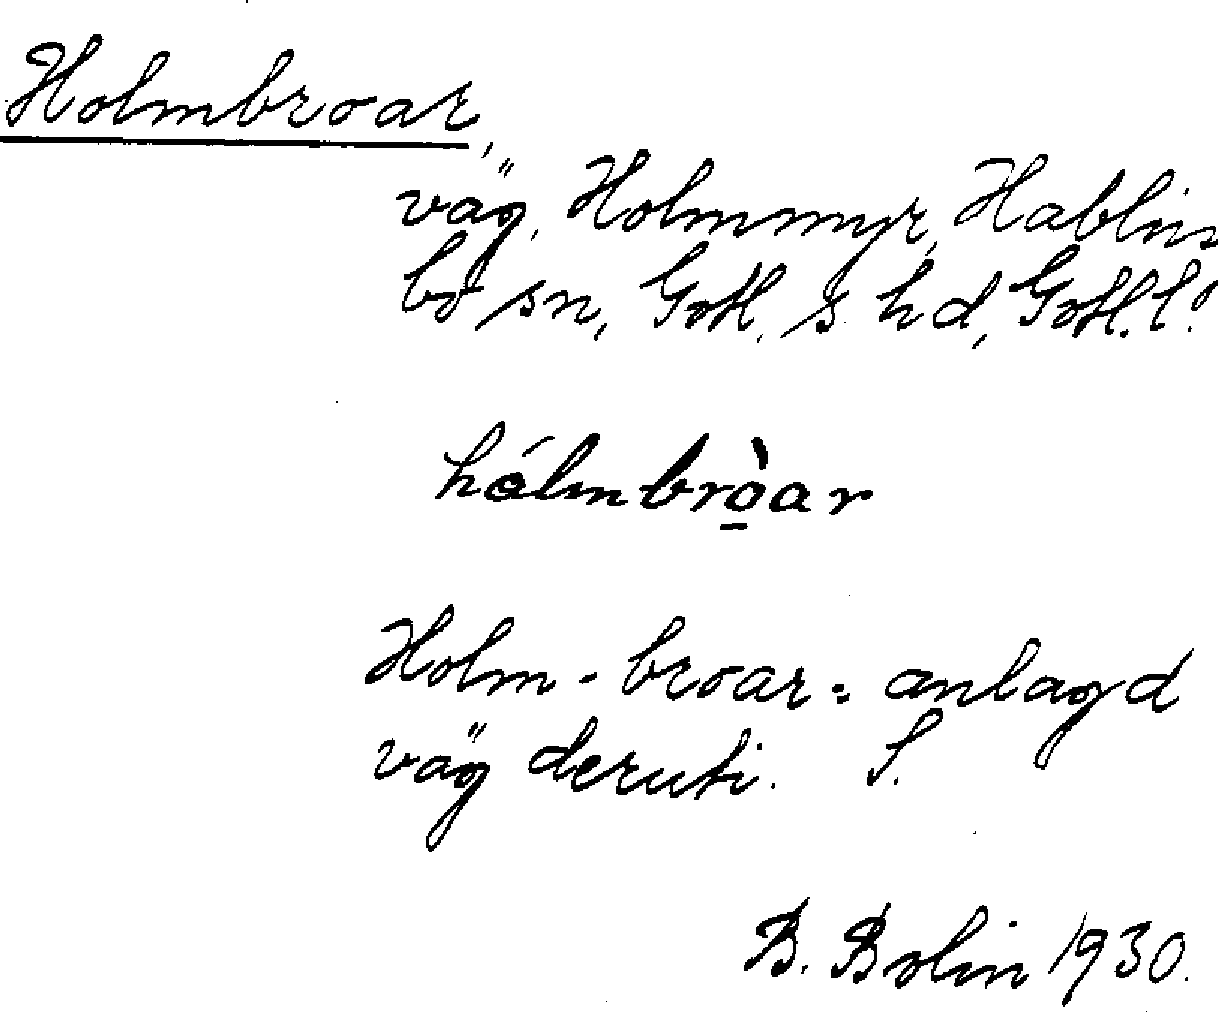 Holmbroar,
väg, Holmmyr, Hablins
bo sn, Gotl. s hd, Gotl. l.
hólmbrò̱ar
Holm-broar = anlagd
väg deruti. S.
B. Bolin 1930.